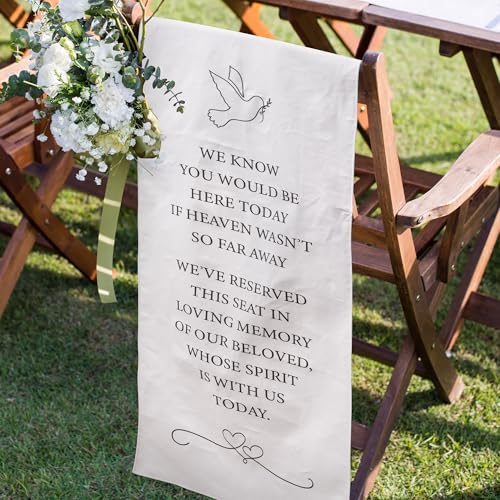 WE KNOW
YOU WOULD BE
HERE TODAY
IF HEAVEN WASN'T
SO FAR AWAY
WE'VE RESERVED
THIS SEAT IN
LOVING MEMORY
OF OUR BELOVED,
WHOSE SPIRIT
IS WITH US
TODAY.